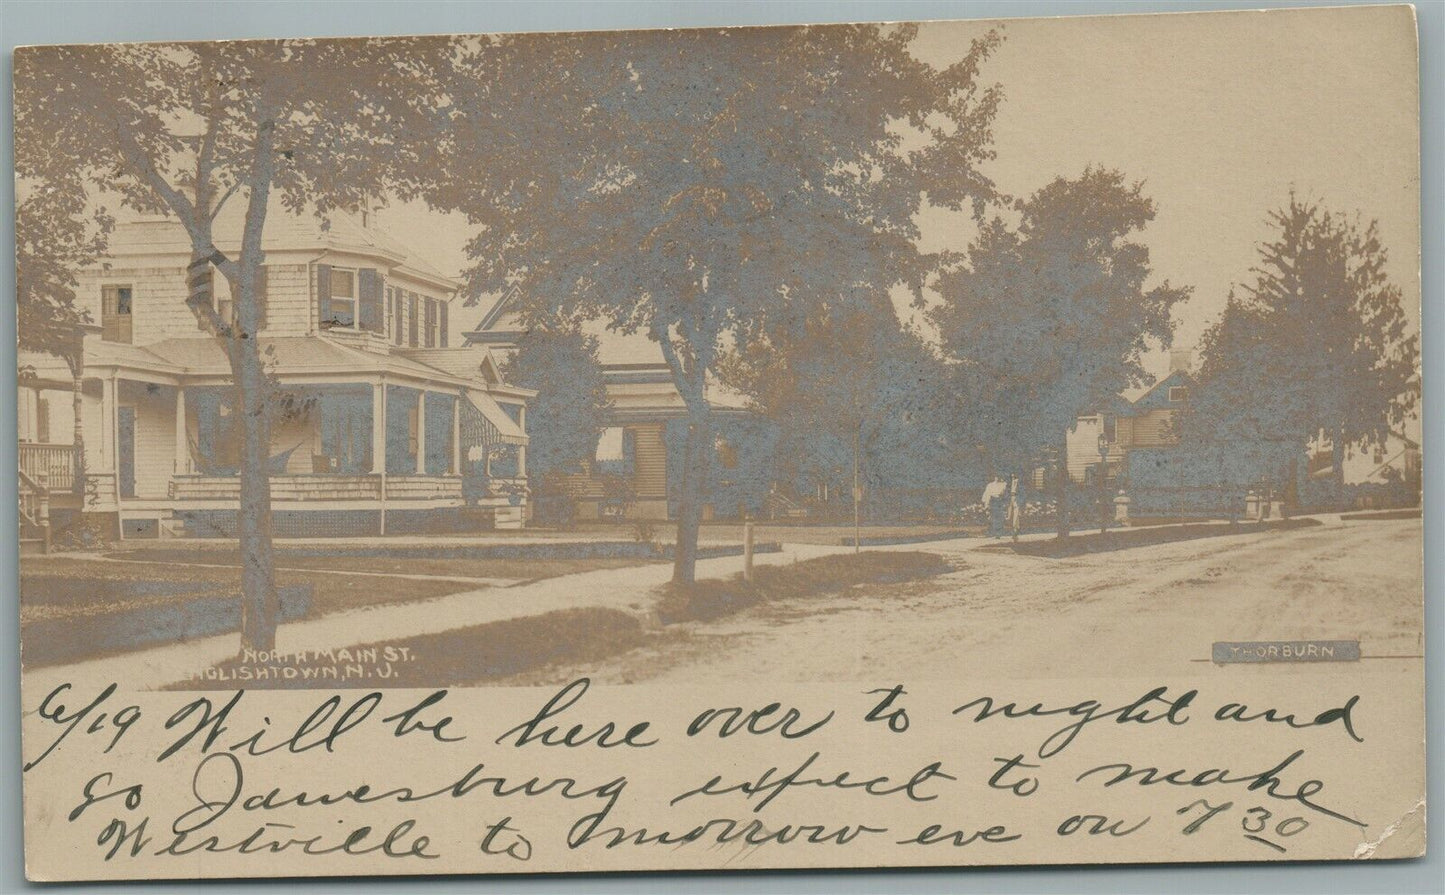 NORTH MAIN ST.
NGLISHTOWN, N.J.
THORBURN
6/19 Will be here over to night and
go Jamesburg expect to make
Westville to morrow eve on 7 30